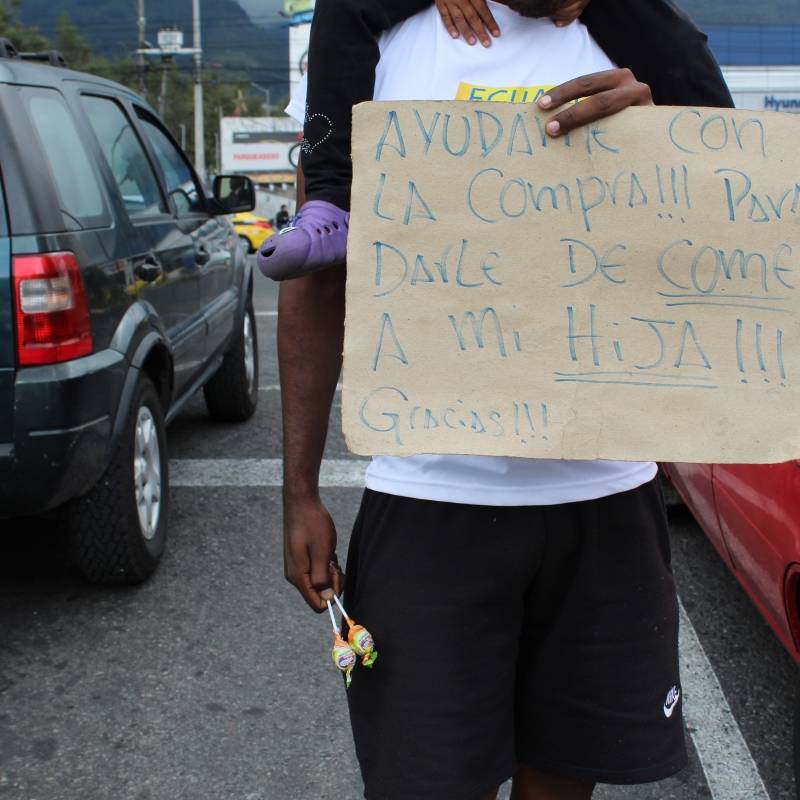 ECUA
Hyun
PARQUEADERO
AYUDAME CON
LA COMPRA!!! PARA
DARLE DE COME
A Mi HiJA!!!
Gracias!!!
NIKE